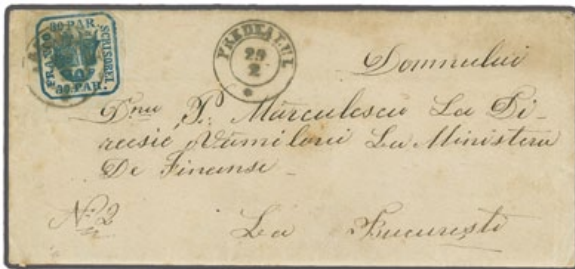 30 PAR.
FRANCO
SCRISOREI
30 PAR.
PREDEALUL
29
2
Domnului
Dnu P. Marculescu La Di-
recsie Vamilorü La Ministeru
De Finanse
No 2
La Bucuresti